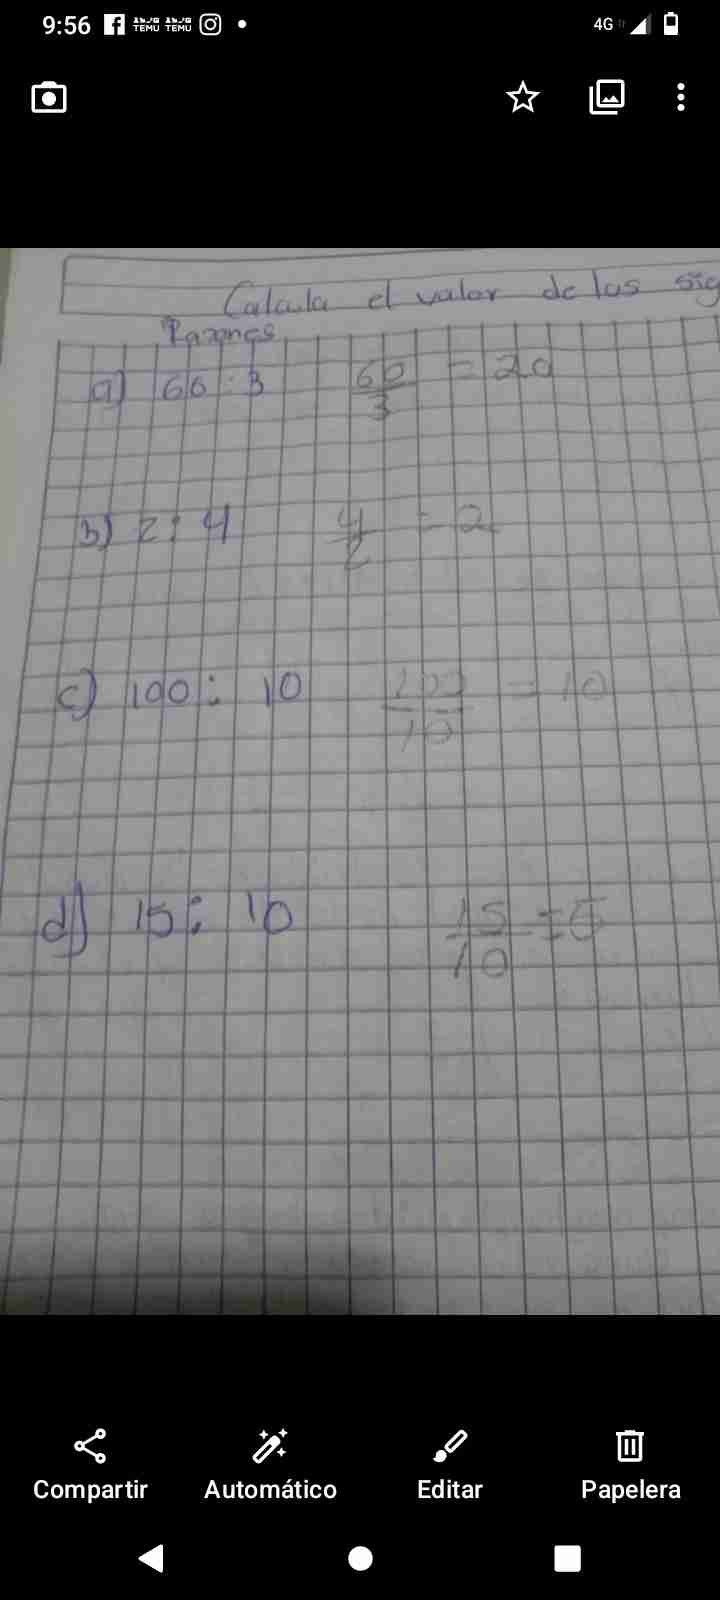 9:56 TEMU TEMU 4G
Calcula el valor de las sig
Razones
a) 60 : 3 60/3 = 20
b) 2 : 4 4/2 = 2
c) 100 : 10 100/10 = 10
d) 15 : 10 15/10 = 5
Compartir Automático Editar Papelera